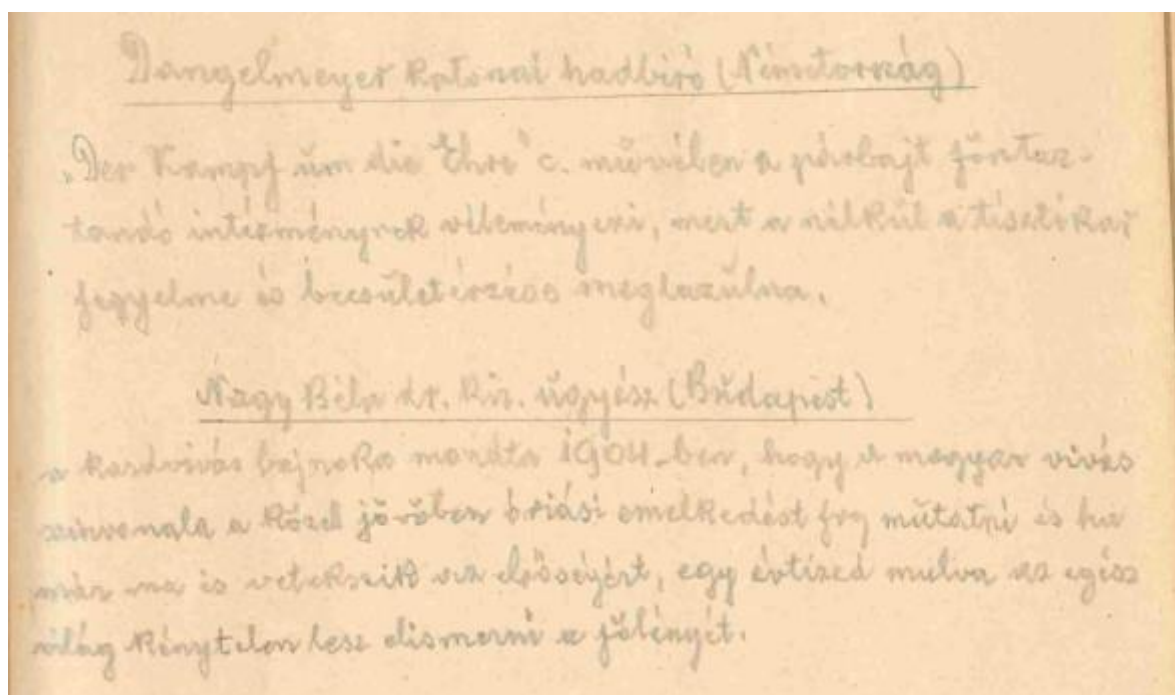 Dangelmeyer katonai hadbiró (Németország)
„Der Kampf um die Ehre" c. művében a párbajt föntar-
tandó intézménynek véleményezi, mert a nélkül a tisztikar
fegyelme és becsületérzése meglazulna.
Nagy Béla dr. kir. ügyész (Budapest)
a kardvívás bajnoka mondta 1904-ben, hogy a magyar vívás
szinvonala a közel jövőben óriási emelkedést fog mutatni és ha
már ma is vetekszik az elsőségért, egy évtized mulva az egész
világ kénytelen lesz elismerni a fölényét.